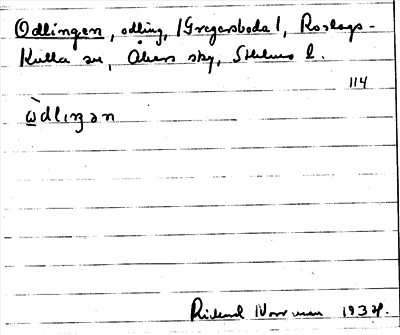 Odlingen, odling, /Gregersboda/, Roslags-
Kulla sn, Åkers skg, Sthlms l.
114
ὼdlıŋən
Rickard Norrman 1932.